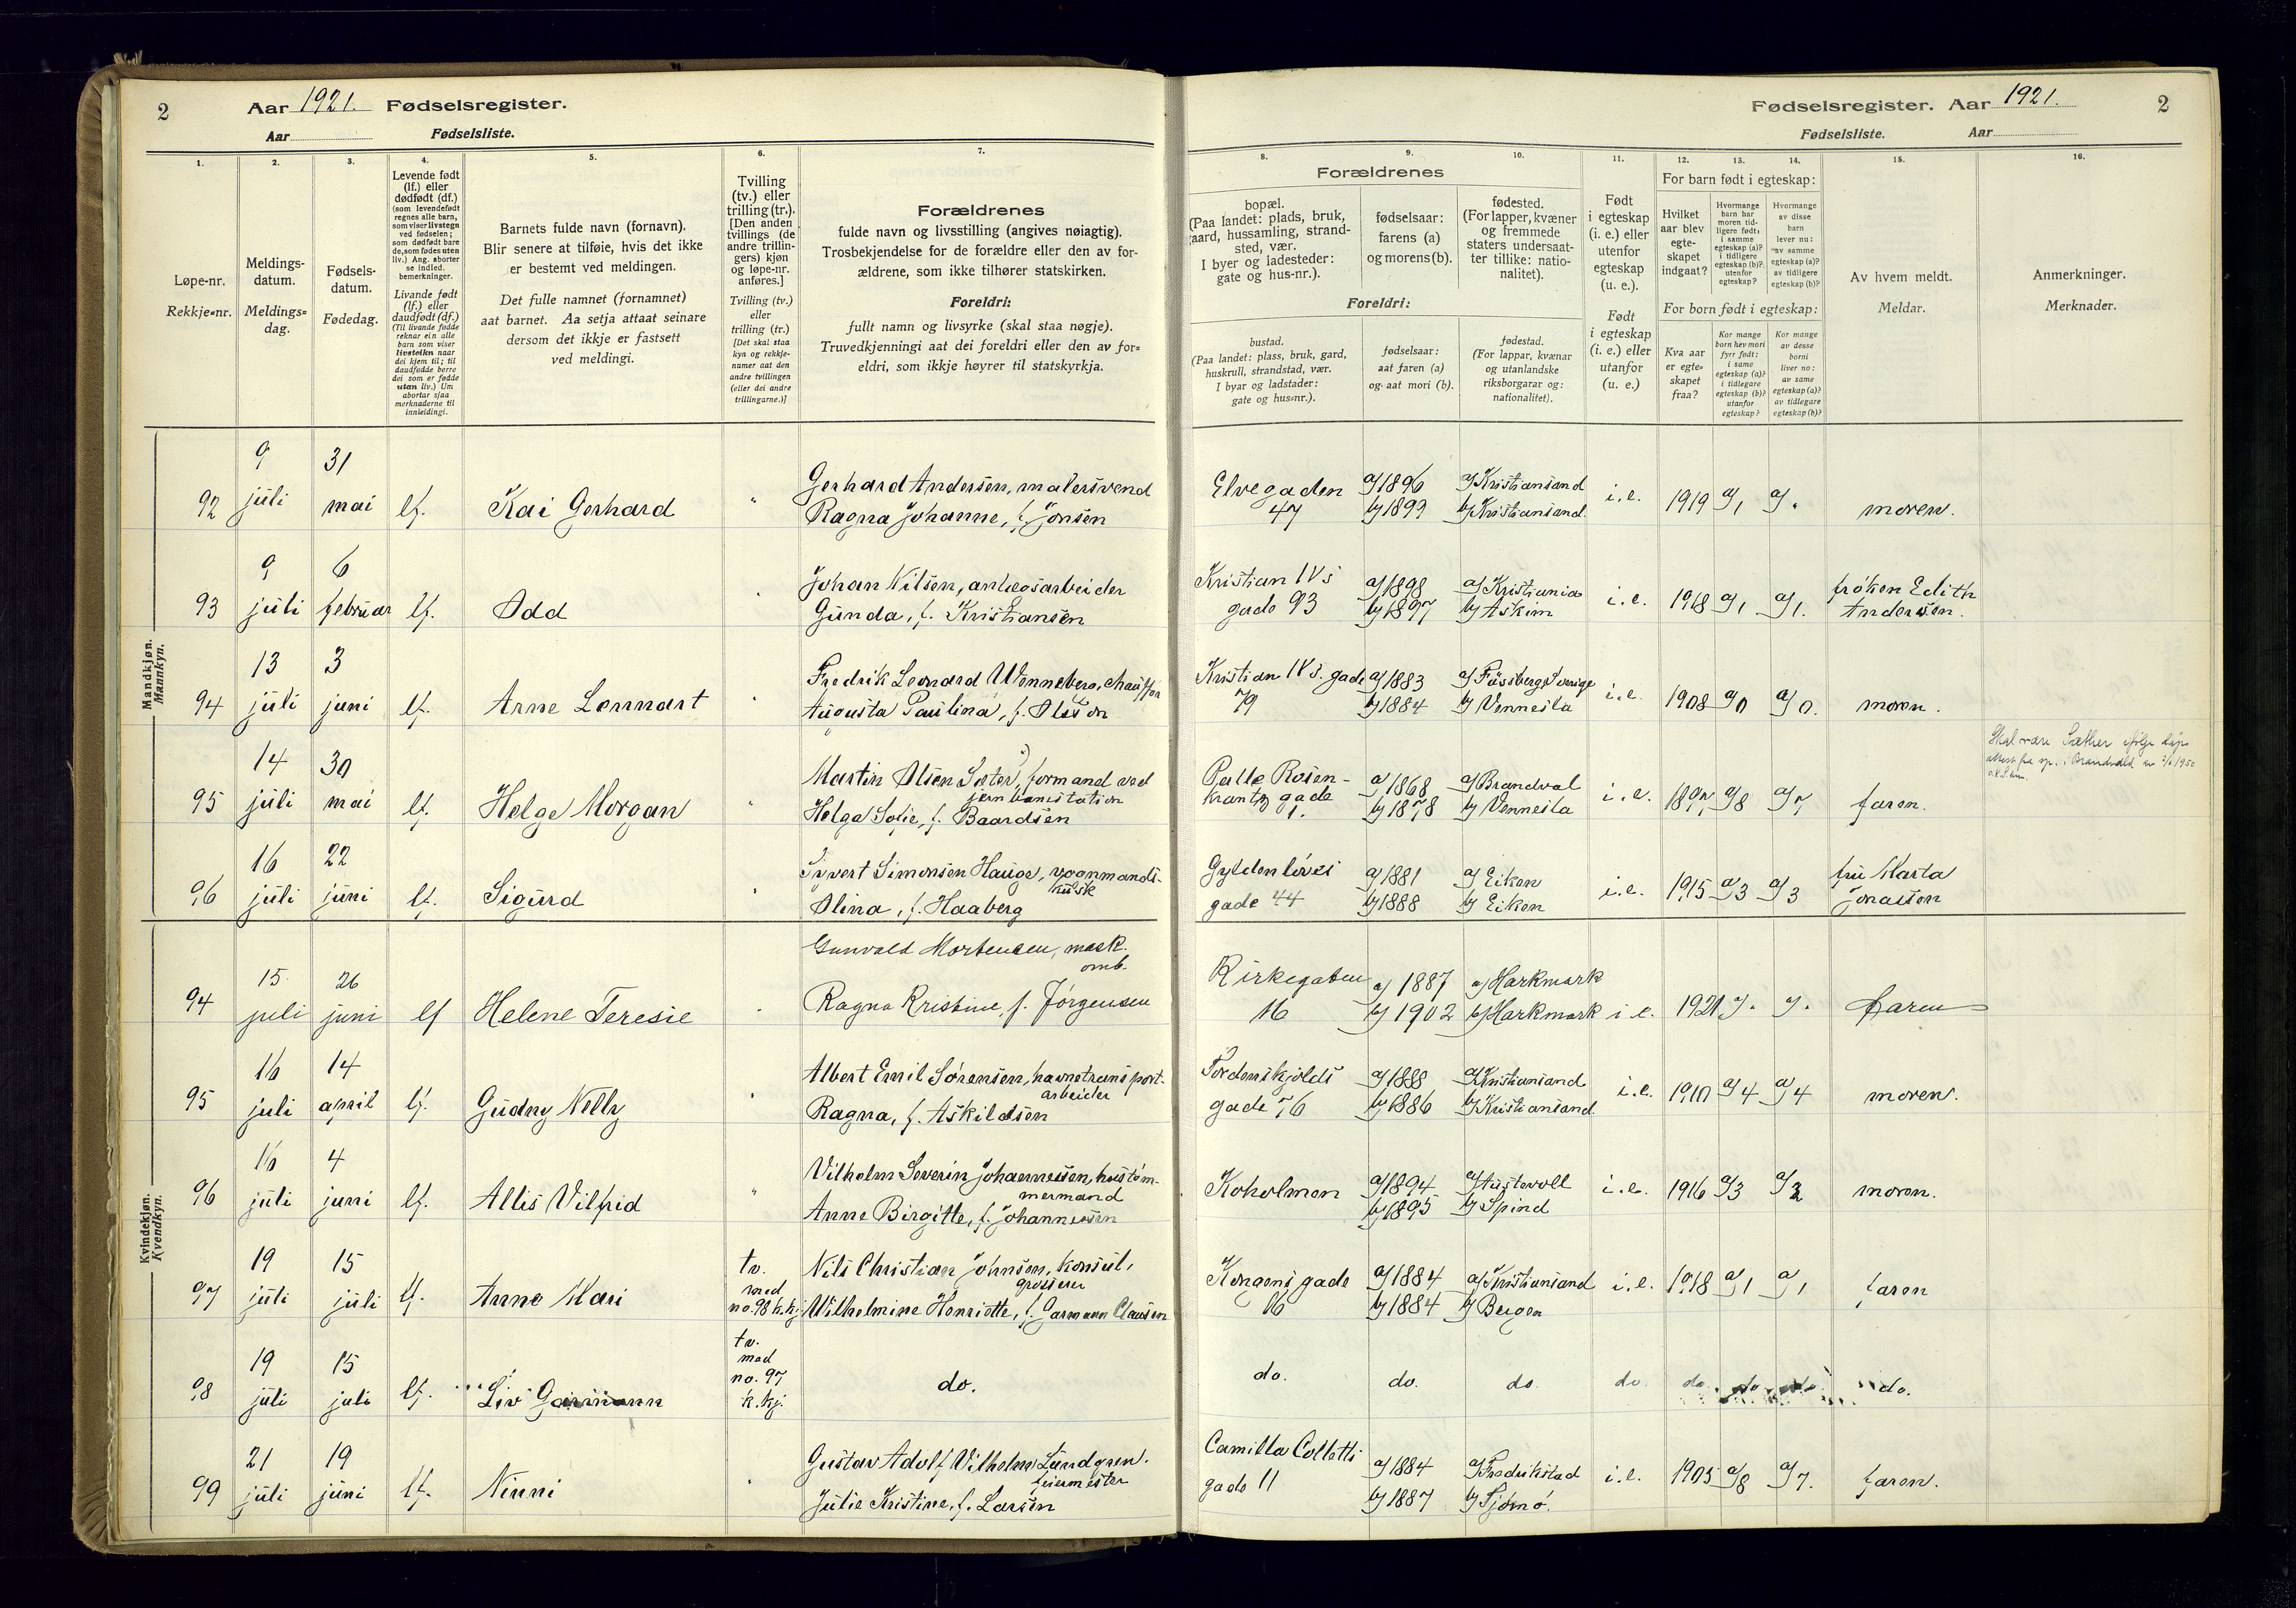 2 Aar 1921. Fødselsregister.
Aar Fødselsliste.
Fødselsregister. Aar 1921. 2
Fødselsliste. Aar
1. 2. 3. 4. 5. 6. 7. 8. 9. 10. 11. 12. 13. 14. 15. 16.
Løpe-nr.
Rekkje-nr.
Meldings-
datum.
Meldings-
dag.
Fødsels-
datum.
Fødedag.
Levende født
(lf.) eller
dødfødt (df.)
(som levendefødt
regnes alle barn,
som viser livstegn
ved fødselen;
som dødfødt bare
de, som fødes uten
liv.) Ang. aborter
se indled.
bemerkninger.
Livande født
(lf.) eller
daudfødt (df.)
(Til livande fødde
reknar ein alle
barn som viser
livsteikn naar
dei kjem til; til
daudfødde berre
dei som er fødde
utan liv.) Um
abortar sjaa
merknaderne til
innleidingi.
Barnets fulde navn (fornavn).
Blir senere at tilføie, hvis det ikke
er bestemt ved meldingen.
Det fulle namnet (fornamnet)
aat barnet. Aa setja attaat seinare
dersom det ikkje er fastsett
ved meldingi.
Tvilling
(tv.) eller
trilling (tr.).
[Den anden
tvillings (de
andre trillin-
gers) kjøn
og løpe-nr.
anføres.]
Tvilling (tv.)
eller
trilling (tr.)
[Det skal staa
kyn og rekkje-
numer aat den
andre tvillingen
(eller dei andre
trillingarne.)]
Forældrenes
fulde navn og livsstilling (angives nøiagtig).
Trosbekjendelse for de forældre eller den av for-
ældrene, som ikke tilhører statskirken.
Foreldri:
fullt namn og livsyrke (skal staa nøgje).
Truvedkjenningi aat dei foreldri eller den av for-
eldri, som ikkje høyrer til statskyrkja.
Forældrenes
bopæl.
(Paa landet: plads, bruk,
gaard, hussamling, strand-
sted, vær.
I byer og ladesteder:
gate og hus-nr.).
fødselsaar:
farens (a)
og morens (b).
fødested.
(For lapper, kvæner
og fremmede
staters undersaat-
ter tillike: natio-
nalitet).
Foreldri:
bustad.
(Paa landet: plass, bruk, gard,
huskrull, strandstad, vær.
I byar og ladstader:
gate og hus-nr.).
fødselsaar:
aat faren (a)
og aat mori (b).
fødestad.
(For lappar, kvænar
og utanlandske
riksborgarar og:
nationalitet).
Født
i egteskap
(i. e.) eller
utenfor
egteskap
(u. e.).
Født
i egteskap
(i. e.) eller
utanfor
(u. e.)
For barn født i egteskap:
Hvilket
aar blev
egte-
skapet
indgaat?
Hvormange
barn har
moren tid-
ligere født:
i samme
egteskap (a)?
i tidligere
egteskap (b)?
utenfor
egteskap?
Hvormange
av disse
barn
lever nu:
av samme
egteskap (a)?
av tidligere
egteskap (b)?
For born født i egteskap:
Kva aar
er egte-
skapet
fraa?
Kor mange
born hev mori
fyrr født:
i same
egteskap (a)?
i tidlegare
egteskap (b)?
utanfor
egteskap?
Kor mange
av desse
borni
liver no:
av same
egteskap (a)?
av tidlegare
egteskap (b)?
Av hvem meldt.
Meldar.
Anmerkninger.
Merknader.
Mandkjøn.
Mannkyn.
92 9 juli 31 mai lf. Kai Gerhard " Gerhard Andersen, malersvend
Ragna Johanne, f. Jonsen
Elvegaden 47 a/1896 b/1899 a/Kristiansand b/Kristiansand. i.e. 1919 a/1 a/. moren.
93 9 juli 6 februar lf. Odd Johan Nilsen, anlægsarbeider
Gunda, f. Kristiansen
Kristian IVs gade 93 a/1898 b/1897 a/Kristiania b/Askim i.e. 1918 a/1 a/1. frøken Edith Andersen.
94 13 juli 3 juni lf. Arne Lennart Fredrik Leonard Wenneberg, chauffør
Augusta Paulina, f. Olsson
Kristian IVs. gade 79 a/1883 b/1884 a/ Sverige b/Vennesla i.e. 1908 a/0 a/0. moren.
95 14 juli 30 mai lf. Helge Morgan " Martin Olsen Sæter, formand ved
jernbanestation
Helga Sofie, f. Baardsen
Palle Rosen-
krantz gade 1. a/1868 b/1878 a/Brandval b/Vennesla i.e. 1897 a/8 a/7 faren.
Skal være Sæther ifølge
96 16 juli 22 juni lf. Sigurd Sivert Simonsen Hauge, vognmands-
kusk
Olina, f. Haaberg
Gyldenløves gade 44 a/1881 b/1888 a/Eiken b/Eiken i.e. 1915 a/3 a/3 fru Marta Jonassen
Kvindekjøn.
Kvendkyn.
94 15. juli 26 juni lf Helene Teresie Gunvald Mortensen, mask.
omb.
Ragna Kristine, f. Jørgensen
Kirkegaten 16 a/1887 b/1902 a/Harkmark b/Harkmark i e. 1921 faren
95 16 juli 14 april lf. Gudny Nelly Albert Emil Sørensen, havnetransport-
arbeider
Ragna, f. Askildsen
Tordenskjolds gade 76 a/1888 b/1886 a/Kristiansand b/Kristiansand i.e. 1910 a/4 a/4 moren.
96 16 juli 4 juni lf. Allis Vilfrid " Vilhelm Severin Johannessen, hustøm-
mermand
Anne Birgitte, f. Johannessen
Koholmen a/1894 b/1895 a/Austevoll b/Spind i.e. 1916 a/3 a/2 moren.
97 19 juli 15 juli lf. Anne Mari tv. med no. 98 k.kj. Nils Christian Johnsen, konsul,
grosserer
Wilhelmine Henriette, f. Garmann Clausen
Kongens gade 16 a/1884 b/1884 a/Kristiansand b/Bergen i.e. 1918 a/1 a/1 faren
98 19 juli 15 juli lf. Liv Garmann tv. med no. 97 k.kj. do.
do. do. do do. do. do do do.
99 21 juli 19 juni lf. Ninni Gustav Adolf Vilhelm Lundgren.
feiermester
Julie Kristine, f. Larsen
Camilla Colletts gade 11 a/1884 b/1887 a/Fredrikstad b/Tjømø. i.e. 1905 a/8 a/7. faren.